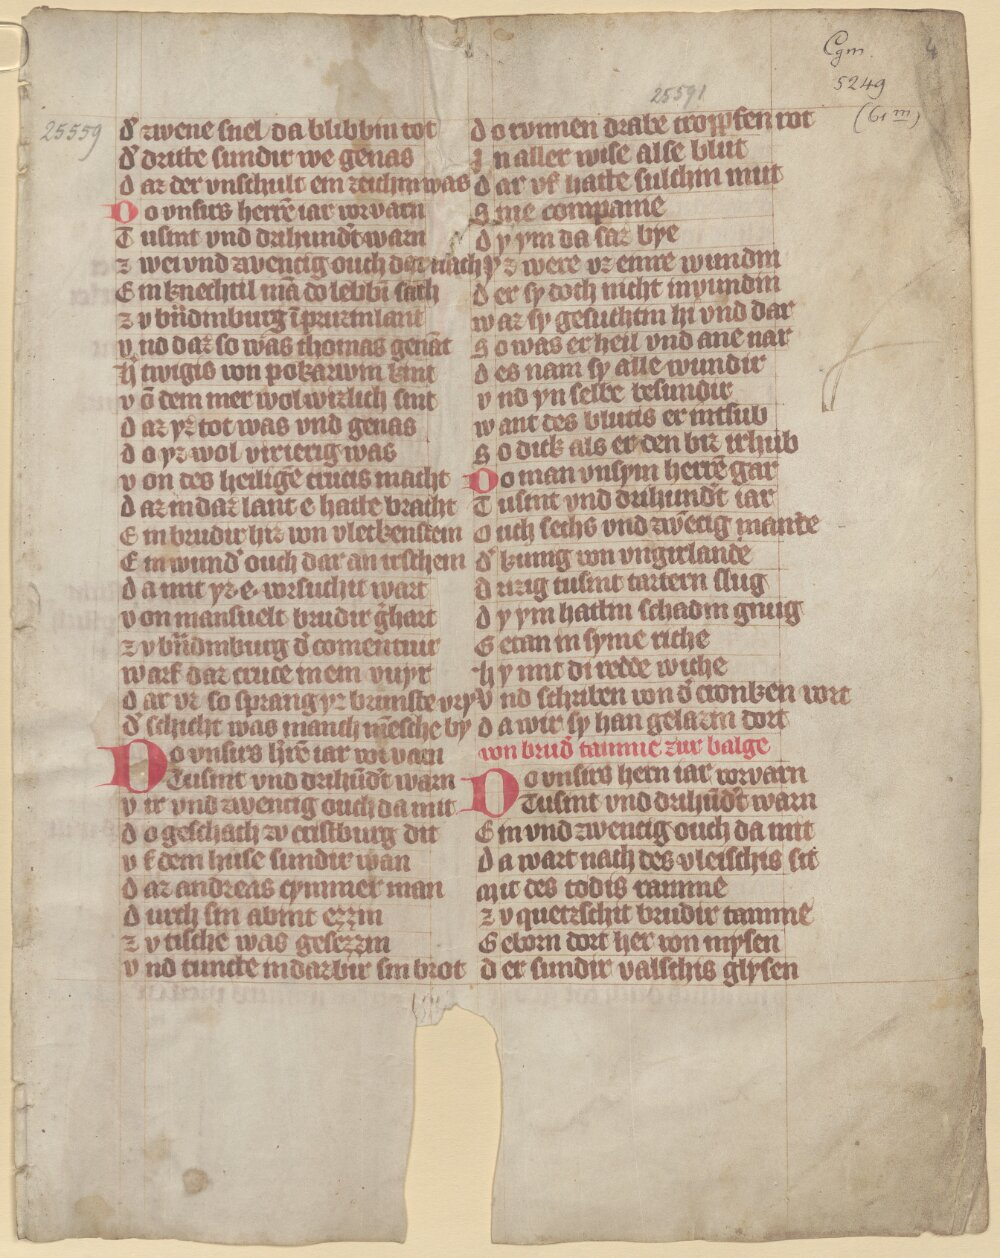 Cgm.
5249
(61 m)
4
25559
25591
dʾ zwene snel da blibbin tot
dʾ dritte sundir we genas
d az der vnschult ein zeichin was
D o vnsirs herrē iar worvarn
T usint vnd drihundʾt warn
z wei vnd zwencig ouch dar nach
E in knechtil mā do lebbī sach
z v brādinburg ī pruzinlant
v nd daz so was thomas genāt
h twigis von pokarwin kint
v ō dem mer wol wizlich sint
d az yz tot was vnd genas
d o yz wol virierig was
v on des heiligē crucis macht
d az in daz lant e hatte bracht
E in brudir hiz von vleckenstein
E in wundʾ ouch dar an irschein
d a mit yz e vorsuchit wart
v on mansuelt brudir gʾhart
z v brādinburg dʾ comentuir
w arf daz cruce in ein vuyr
d ar vz so sprang yz brunste vry
dʾ schicht was manch mēsche by
D o vnsirs hʾrē iar vorvarn
T usint vnd drihūdʾt warn
v ir vnd zwencig ouch da mit
d o geschach zv cristburg dit
v f dem huse sundir wan
d az andreas cymmerman
d urch sin abint ezzin
z v tische was gesezzin
v nd tuncte in daz bir sin brot
d o runnen drabe troppfen rot
i n aller wise alse blut
d ar vf hatte sulchin mut
S ine companie
d y ym da saz bye
y z were vz eime wundin
d er sy doch nicht invundin
w az sy gesuchtin hi vnd dar
s o was er heil vnd ane var
d es nam sy alle wundir
v nd yn selbe besundir
w ant des blutis er intsub
s o dick als er den biz irhub
D o man vnsym herrē gar
T usint vnd drihundʾt iar
o uch sechs vnd zwēcig mante
dʾ kunig von vngirlande
d rizig tusint tartern slug
d y ym hattin schadin gnug
G etan in syme riche
h y mit di rede wiche
v nd schriben von dʾ cronken vort
d a wir sy han gelazin dort
von brudʾ tamme zur balge
D o vnsirs hern iar vorvarn
T usint vnd drihūdʾt warn
E in vnd zwencig ouch da mit
d a wart nach des vleischis sit
m it des todis ramme
z v quetzschit brudir tamme
G eborn dort her von mysen
d er sundir valschis glysen